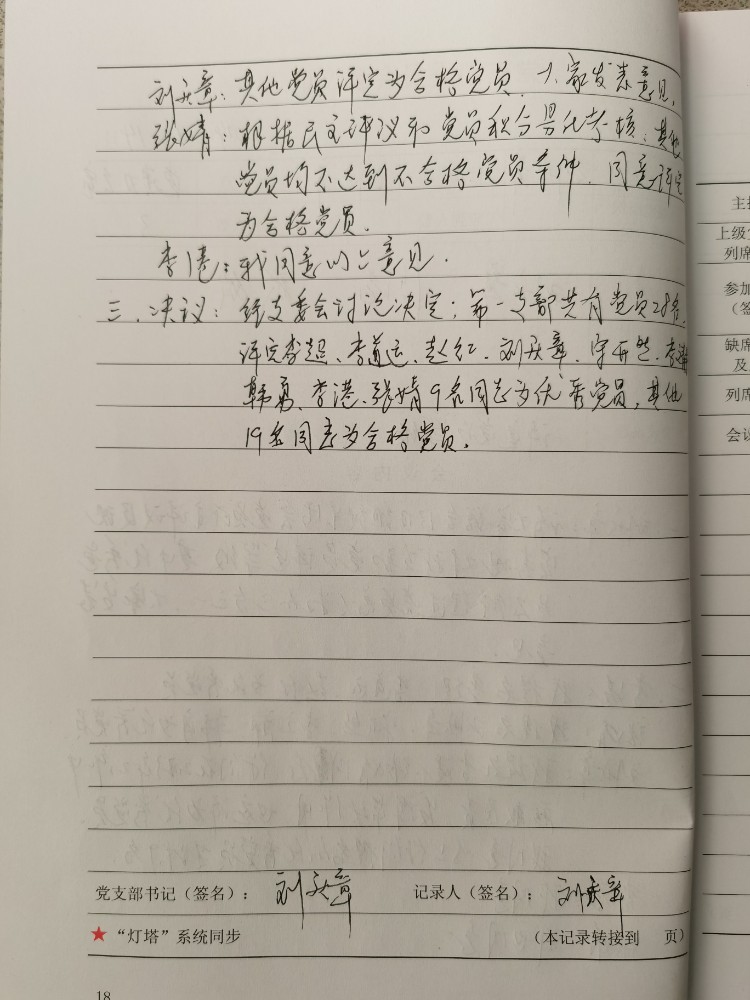 刘庆章：其他党员评定为合格党员，大家发表意见。
张婧：根据民主评议和党员积分量化考核，其他
党员均不达到不合格党员条件，同意评定
为合格党员。
李港：我同意以上意见。
三、决议：经支委会讨论决定：第一支部共有党员28名，
评定李超、李道运、赵红、刘庆章、宋开兰、李
韩勇、李港、张婧9名同志为优秀党员，其他
19名同志为合格党员。
党支部书记（签名）： 刘庆章 记录人（签名）： 刘庆章
★“灯塔”系统同步 （本记录转接到 页）
18
主持
上级
列席
参加
（签
缺席
及
列席
会议